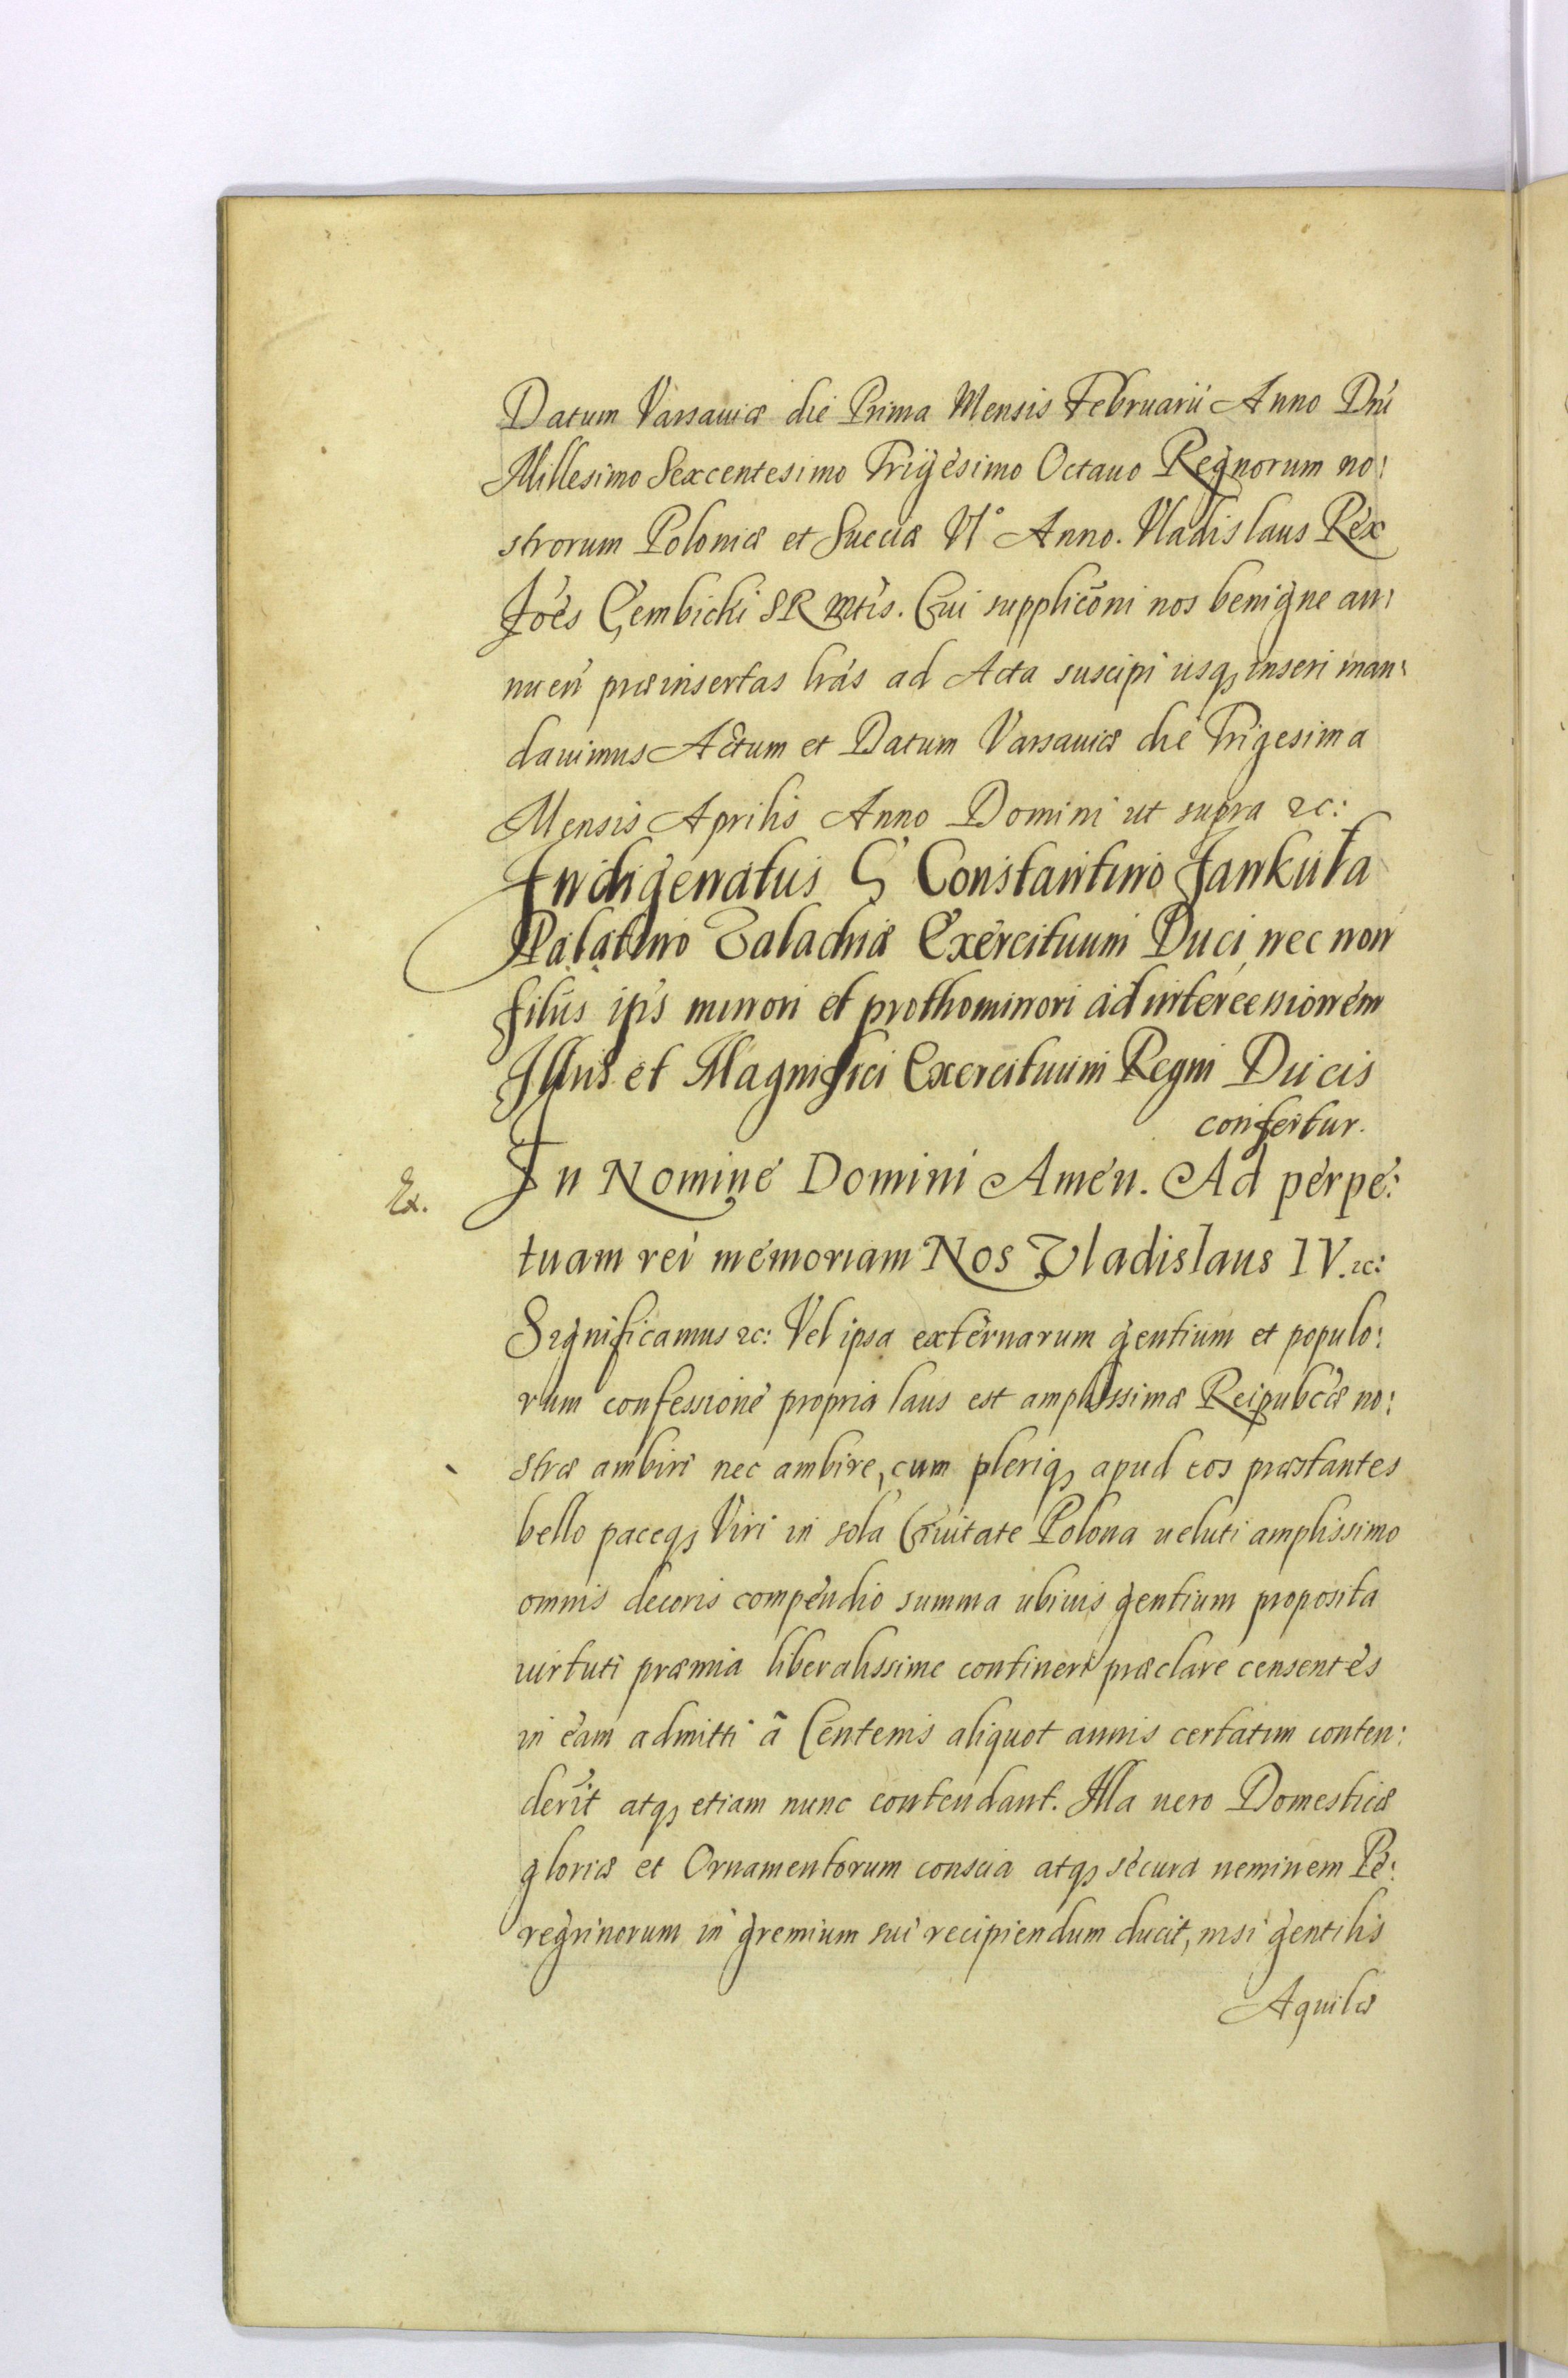 Datum Varsauiæ die Prima Mensis Februarii Anno Dni
Millesimo Sexcentesimo Trigesimo Octauo Regnorum no:
strorum Poloniæ et Sueciæ VI° Anno. Vladislaus Rex
Joes Gembicki SRMtis. Cui supplicõni nos benigne an:
nuen præinsertas lras ad Acta suscipi iisq inseri man:
dauimus Actum et Datum Varsauiæ die Trigesima
Mensis Aprilis Anno Domini ut supra &c:
Indigenatus G Constantino Jankuła
Palatino Valachiæ Exercituum Duci nec non
filiis ips minori et prothominori ad intercessionem
Illris et Magnifici Exercituum Regni Ducis
confertur.
Ex.
In Nomine Domini Amen. Ad perpe:
tuam rei memoriam Nos Vladislaus IV. &c:
Significamus &c: Vel ipsa externarum gentium et populo:
rum confessione propria laus est amplissimæ Reipubcæ no:
stræ ambiri nec ambire, cum pleriq apud eos præstantes
bello paceq Viri in sola Ciuitate Polona ueluti amplissimo
omnis decoris compendio summa ubiuis gentium proposita
uirtuti præmia liberalissime contineri præclare censentes
in eam admitti ã Centenis aliquot annis certatim conten:
derĩt atq etiam nunc contendant. Illa uero Domesticæ
gloriæ et Ornamentorum conscia atq secura neminem Pe:
regrinorum in gremium sui recipiendum ducit, nisi gentilis
Aquilæ